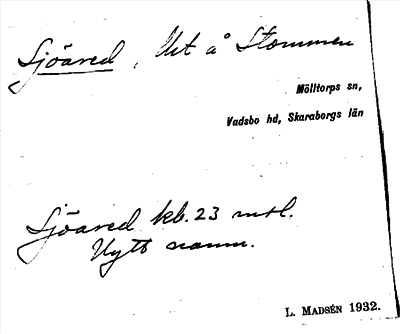 Sjöared, Ut å Stommen
Mölltorps sn,
Vadsbo hd, Skaraborgs län
Sjöared kb. 23 mtl.
Nytt namn.
L. MADSÉN 1932.